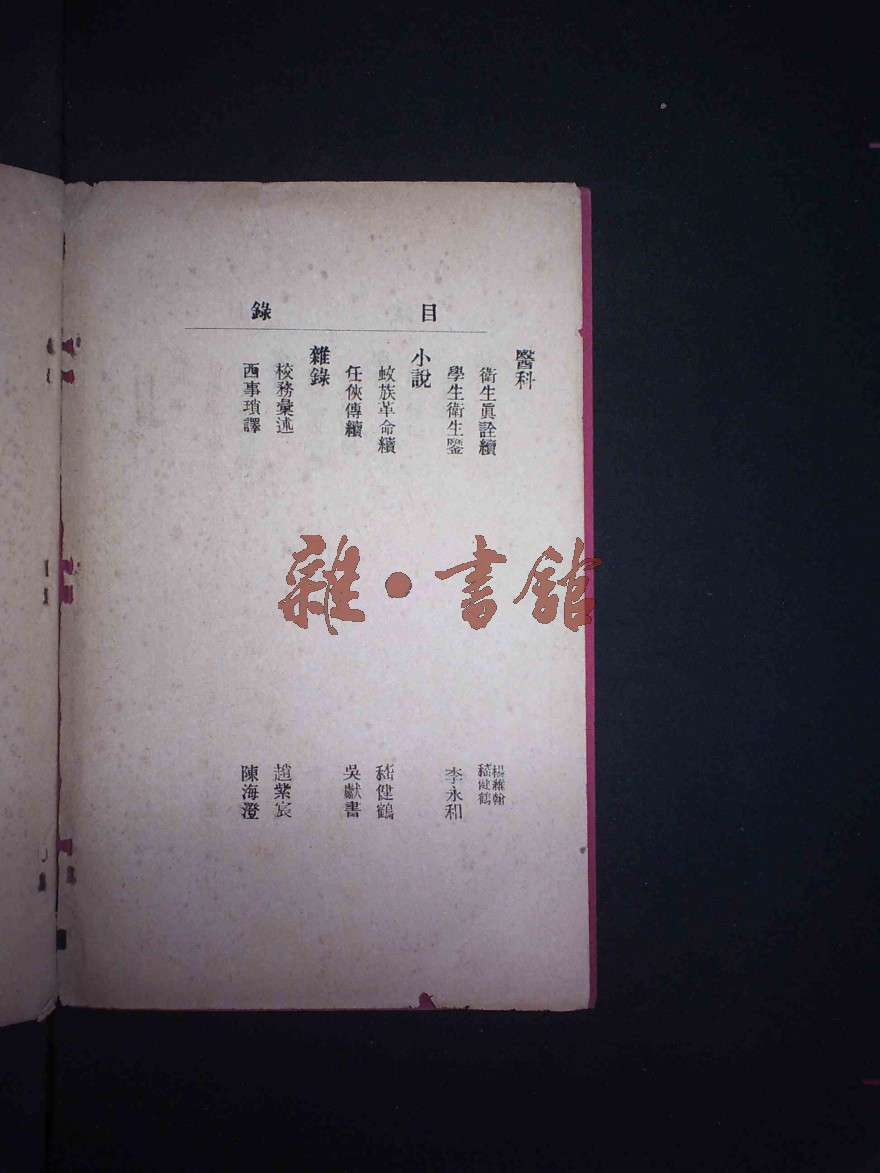 目錄
醫科
衛生眞詮續 楊維翰 嵇健鶴
學生衛生鑒 李永和
小說
蚊族革命續 嵇健鶴
任俠傳續 吳獻書
雜錄
校務彙述 趙紫宸
西事瑣譯 陳海澄
雜·書館